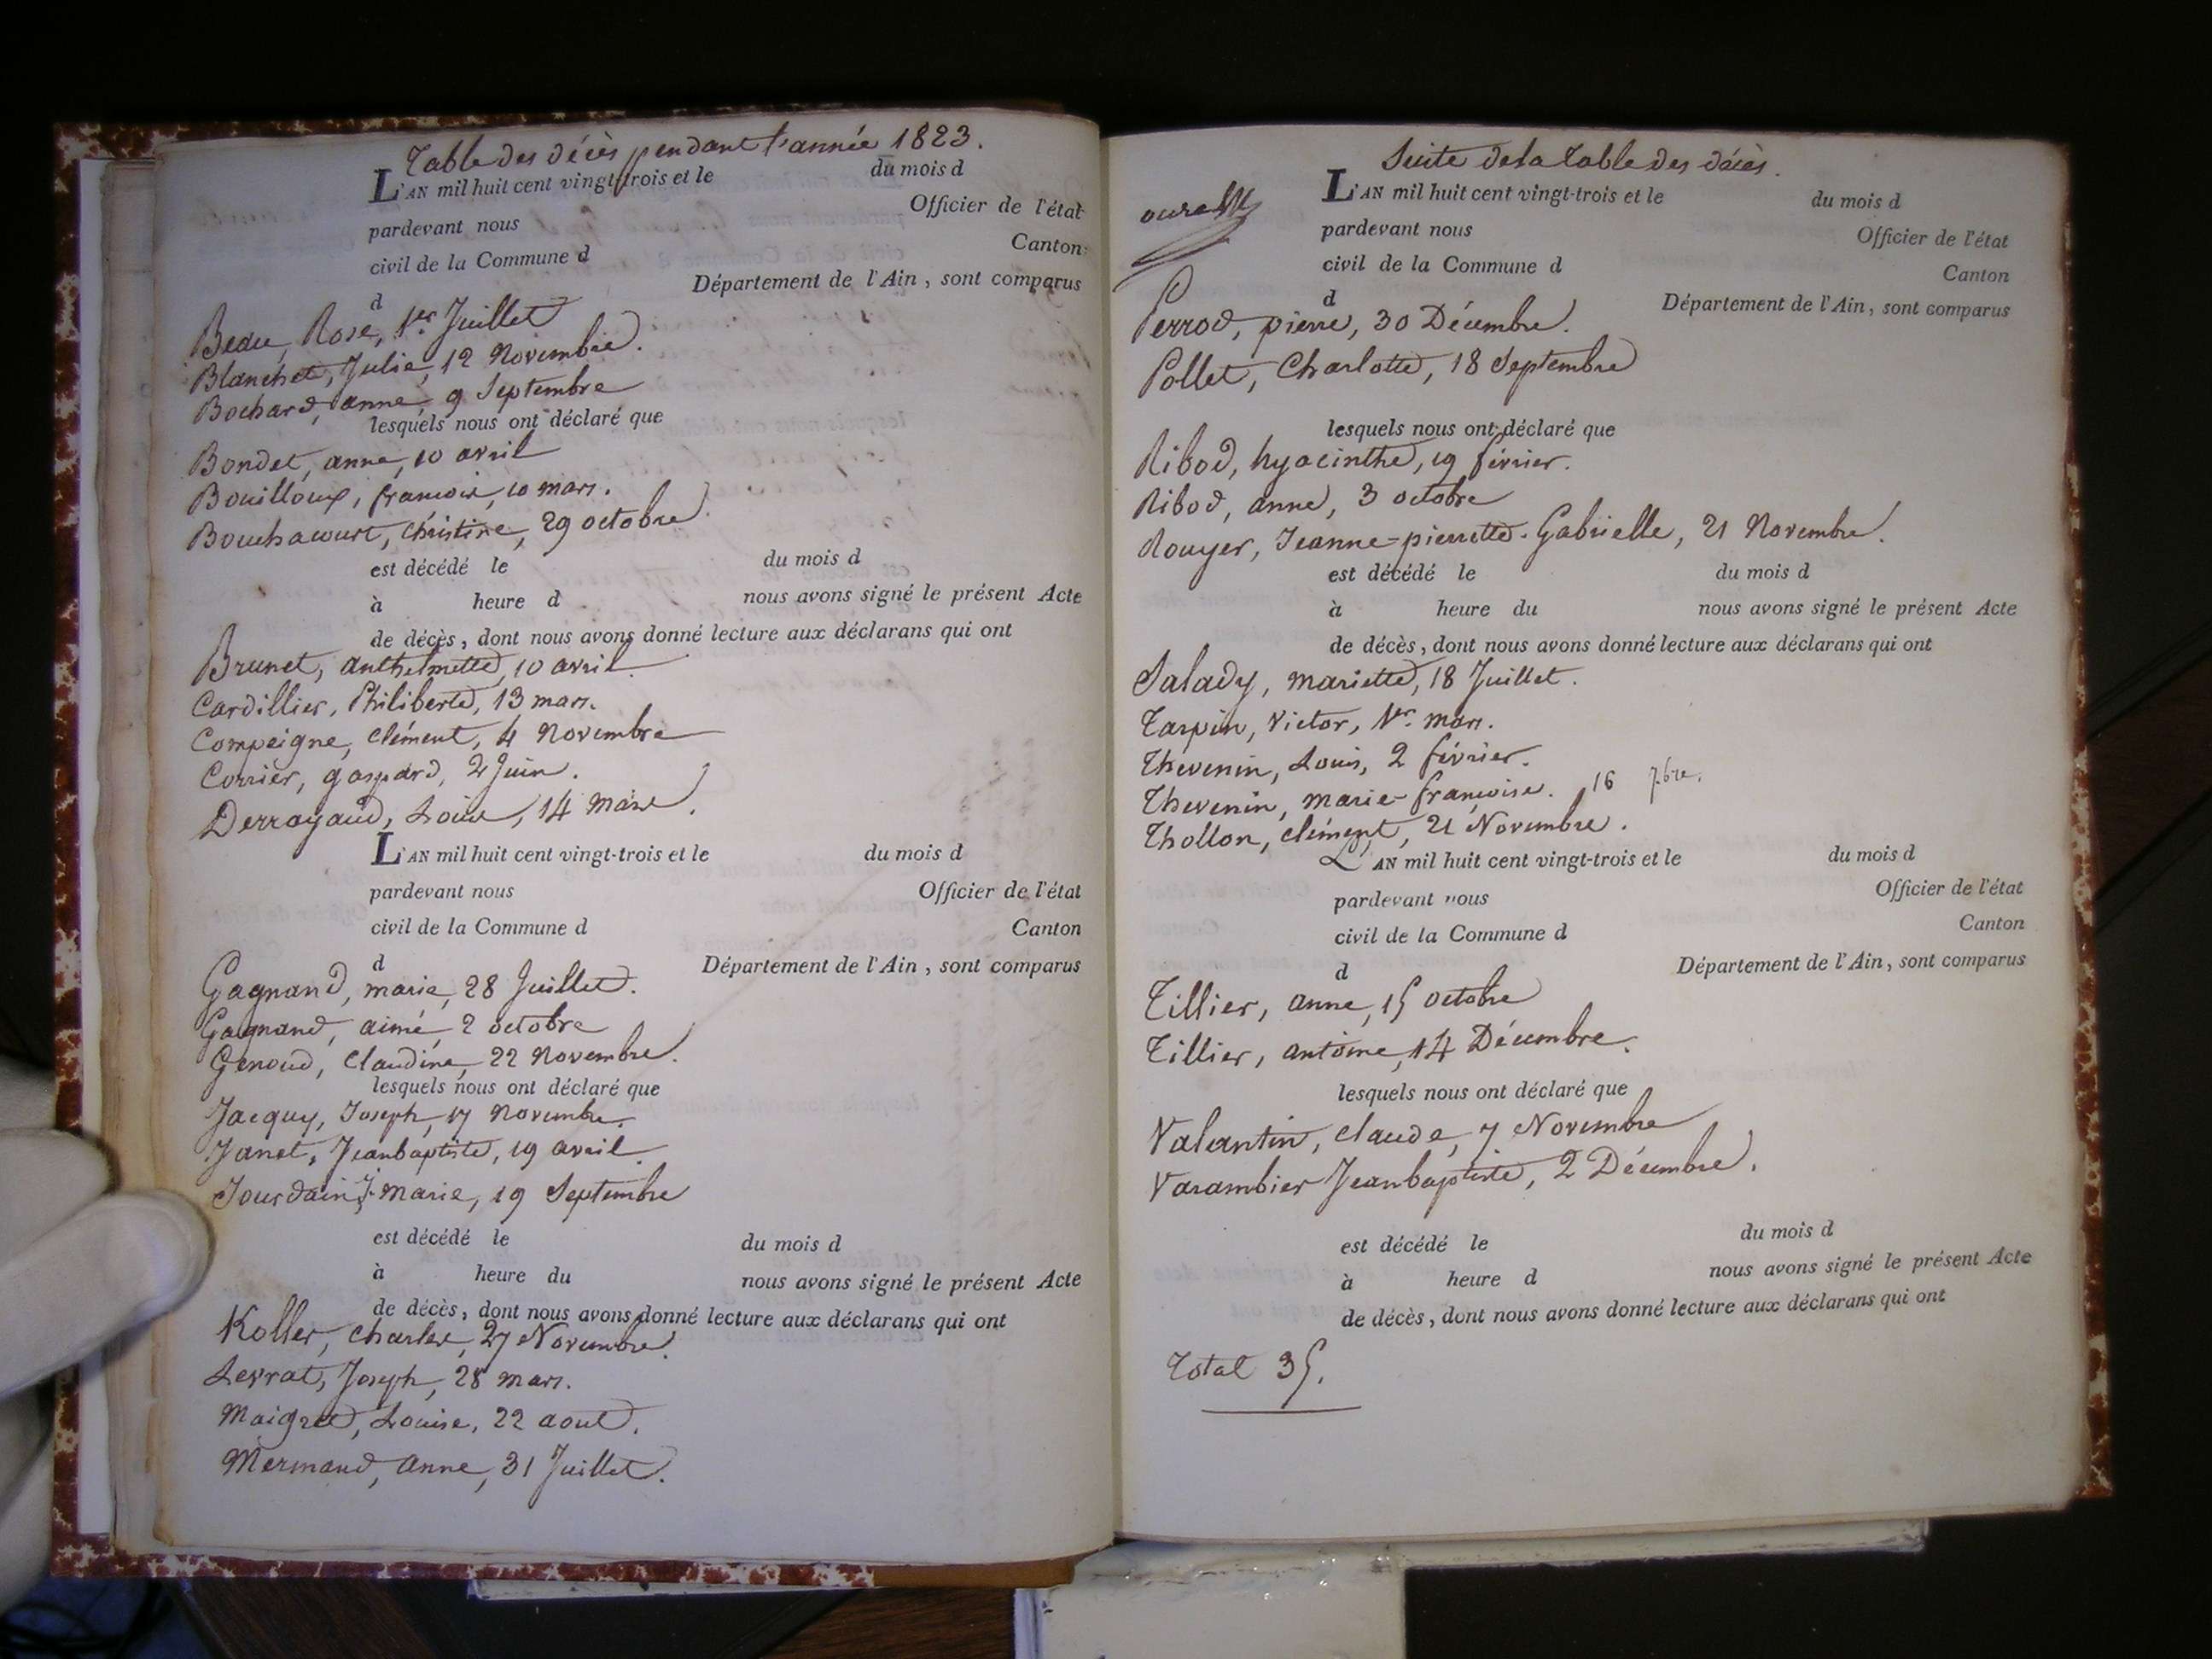 Table des décès pendant l'année 1823.
L'AN mil huit cent vingt-trois et le du mois d
pardevant nous Officier de l'état
civil de la Commune d Canton
d Département de l'Ain, sont comparus
Beau, Rose, 1er Juillet
Blanchet, Julie, 12 Novembre.
Bochard, anne, 9 Septembre
lesquels nous ont déclaré que
Bondet, anne, 10 avril
Bouilloux, francois, 10 mars.
Bouchacourt, Christine, 29 octobre
est décédé le du mois d
à heure d nous avons signé le présent Acte
de décès, dont nous avons donné lecture aux déclarans qui ont
Brunet, anthelmette, 10 avril.
Cardillier, Philiberte, 13 mars.
Compeigne, Clément, 4 Novembre
Corrier, gaspard, 2 Juin.
Derroyaud, Louise, 14 mars.
L'AN mil huit cent vingt-trois et le du mois d
pardevant nous Officier de l'état
civil de la Commune d Canton
d Département de l'Ain, sont comparus
Gagnand, marie, 28 Juillet.
Gagnand, aimé, 2 octobre
Genoud, Claudine, 22 Novembre.
lesquels nous ont déclaré que
Jacquy, Joseph, 17 Novembre.
Janet, Jeanbaptiste, 19 avril.
Jourdain, J. Marie, 19 Septembre
est décédé le du mois d
à heure du nous avons signé le présent Acte
de décès, dont nous avons donné lecture aux déclarans qui ont
Koller, Charles, 27 Novembre.
Levrat, Joseph, 28 mars.
Maigret, Louise, 22 aout.
Mermand, anne, 31 Juillet.
Suite de la Table des décès.
L'AN mil huit cent vingt-trois et le du mois d
pardevant nous Officier de l'état
civil de la Commune d Canton
d Département de l'Ain, sont comparus
Perrod, pierre, 30 Décembre.
Pollet, Charlotte, 18 Septembre
lesquels nous ont déclaré que
Ribod, hyacinthe, 19 février.
Ribod, anne, 3 octobre
Rouyer, Jeanne-pierrette-Gabrielle, 21 Novembre.
est décédé le du mois d
à heure du nous avons signé le présent Acte
de décès, dont nous avons donné lecture aux déclarans qui ont
Salady, mariette, 18 Juillet.
Tarpin, Victor, 1er mars.
Thevenin, Louis, 2 février.
Thevenin, marie-francoise. 16 7bre.
Thollon, clément, 21 Novembre.
L'AN mil huit cent vingt-trois et le du mois d
pardevant nous Officier de l'état
civil de la Commune d Canton
d Département de l'Ain, sont comparus
Tillier, anne, 15 octobre
Tillier, antoine, 14 Décembre.
lesquels nous ont déclaré que
Valantin, claude, 7 Novembre
Varambier Jeanbaptiste, 2 Décembre.
est décédé le du mois d
à heure d nous avons signé le présent Acte
de décès, dont nous avons donné lecture aux déclarans qui ont
Total 35.